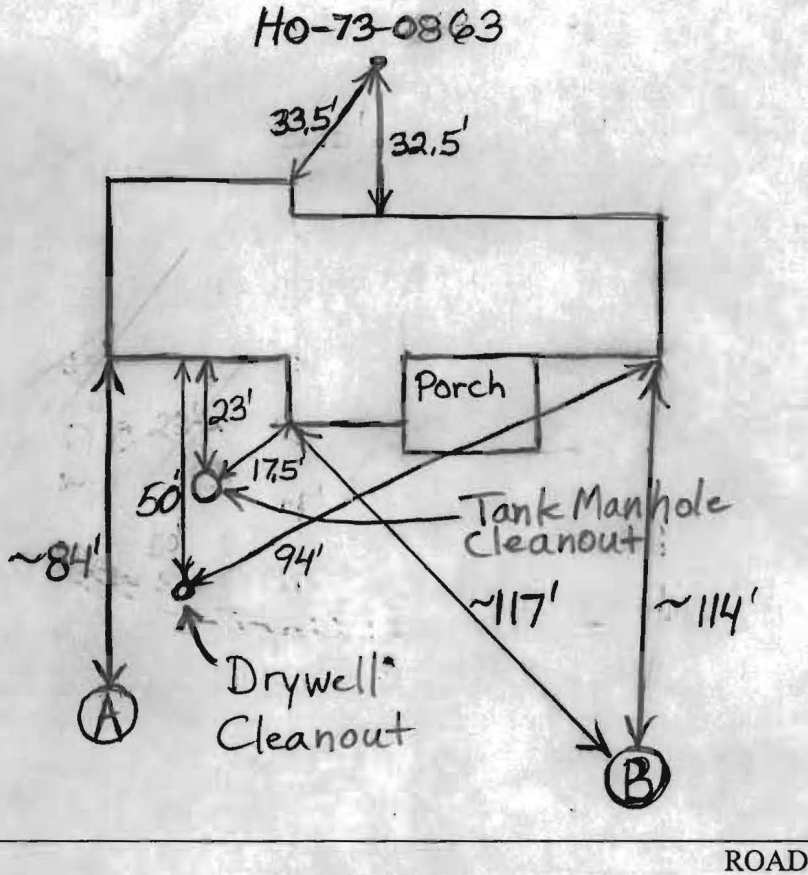 HO-73-0863
33.5'
32.5'
Porch
23'
17.5'
50'
Tank Manhole
Cleanout
~84'
94'
~117'
~114'
Drywell
Cleanout
A
B
ROAD